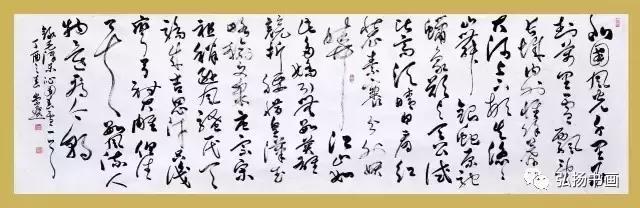 北国风光千里冰
封万里雪飘望
长城内外惟余莽莽
大河上下顿失滔滔
山舞银蛇原驰
蜡象欲与天公试
比高须晴日看红
装素裹分外妖
娆江山如
此多娇引无数英雄
竞折腰惜秦皇汉武
略输文采唐宗宋
祖稍逊风骚一代天
骄成吉思汗只识
弯弓射大雕俱往
矣数风流人
物还看今朝
录毛泽东沁园春雪一首
丁酉之春
弘扬书画